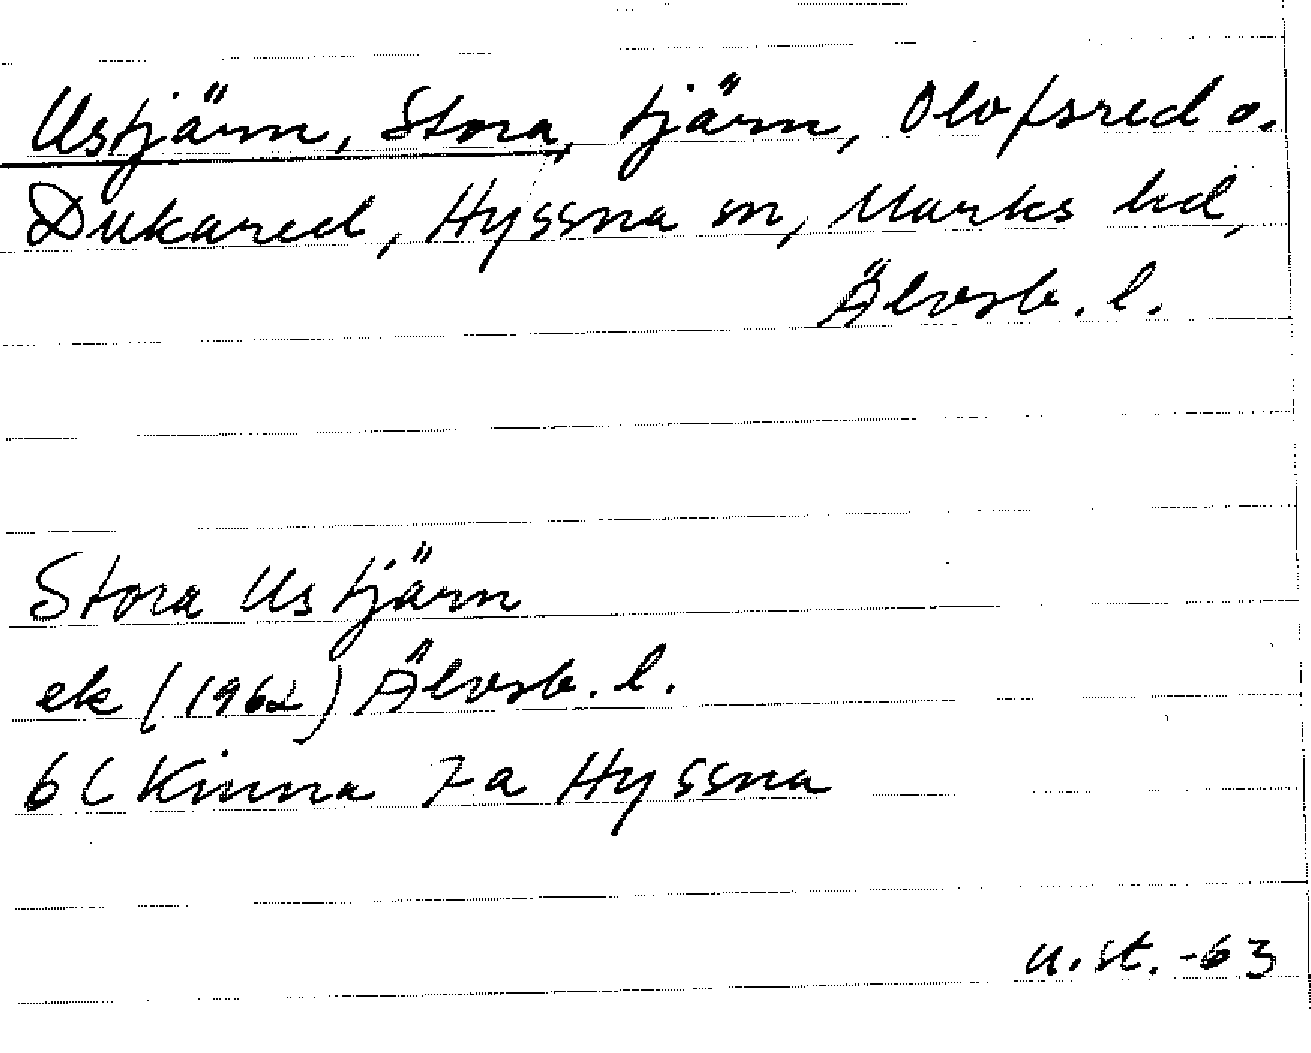 Ustjärn, Stora, tjärn, Olofsred o.
Dukared, Hyssna sn, Marks hd,
Älvsb. l.
Stora Ustjärn
ek (1962) Älvsb. l.
6C Kinna 7a Hyssna
u.st. -63